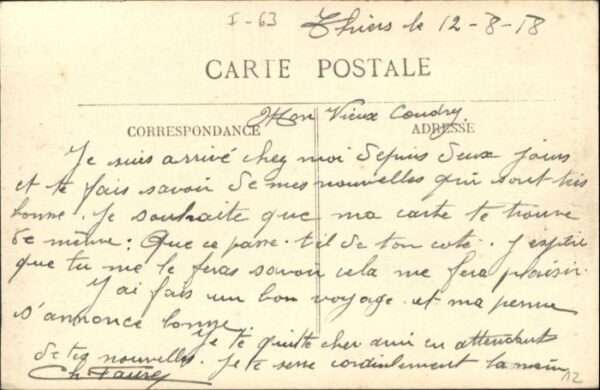 I-63
Thiers le 12-8-18
CARTE POSTALE
Mon Vieux Coudry.
CORRESPONDANCE
ADRESSE
Je suis arrivé chez moi depuis deux jours
et te fais savoir de mes nouvelles qui sont très
bonne. Je souhaite que ma carte te trouve
de même. Que ce passe-t-il de ton coté. J'espère
que tu me le feras savoir cela me fera plaisir.
J'ai fais un bon voyage et ma perme
s'annonce bonne.
Je te quitte cher ami en attendant
de tes nouvelles. Je te serre cordialement la main
Ch. Faure
12